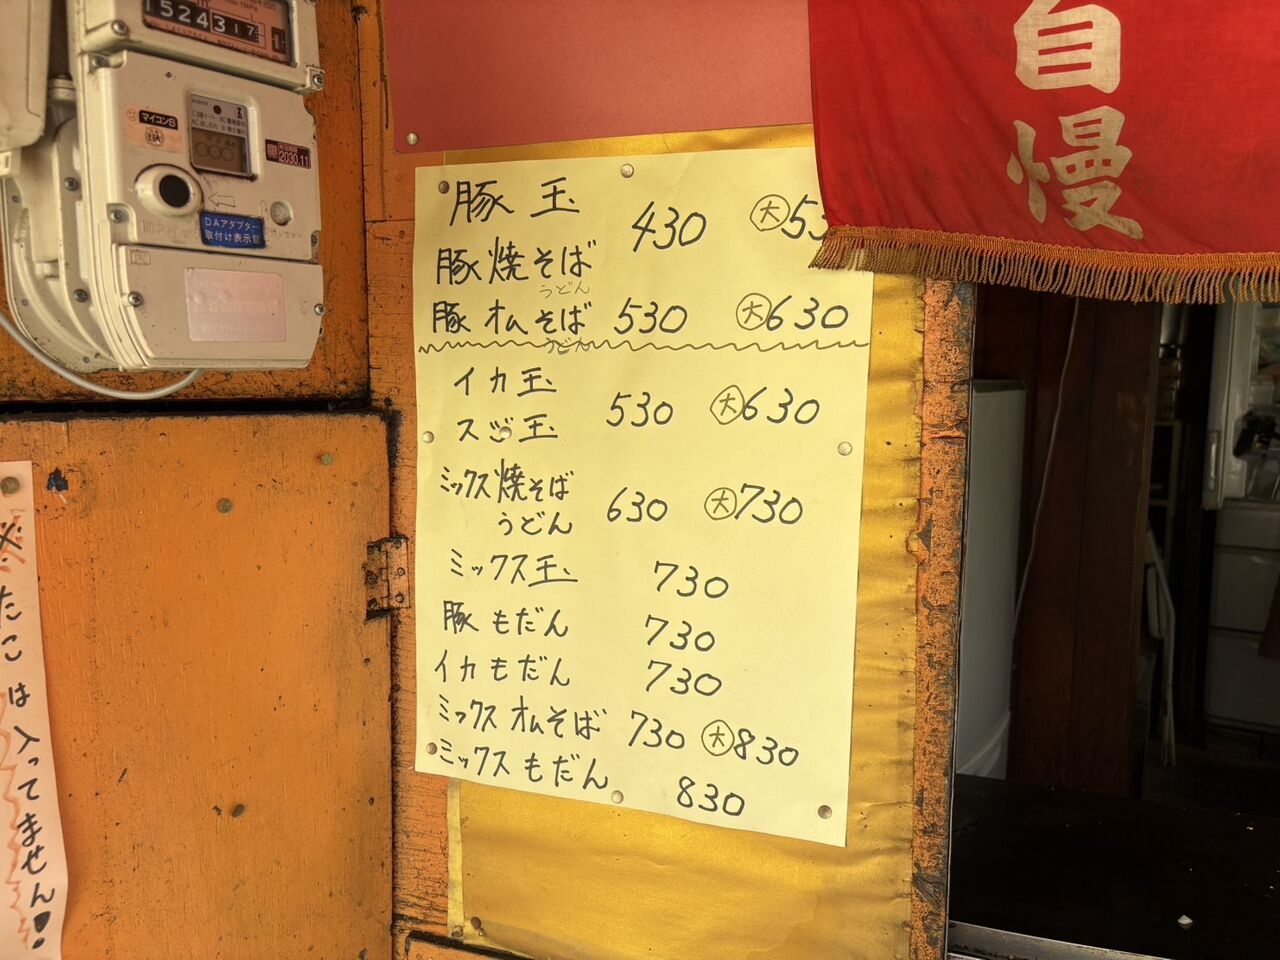 自慢
豚玉
430 大 53
豚焼そば
うどん
豚オムそば 530 大 630
うどん
イカ玉
530 大 630
スジ玉
ミックス焼そば
うどん
630 大 730
ミックス玉 730
豚もだん 730
イカもだん 730
ミックスオムそば 730 大 830
ミックスもだん 830
※たこは入ってません!
マイコンS
2030.11
DAアダプター
取付け表示